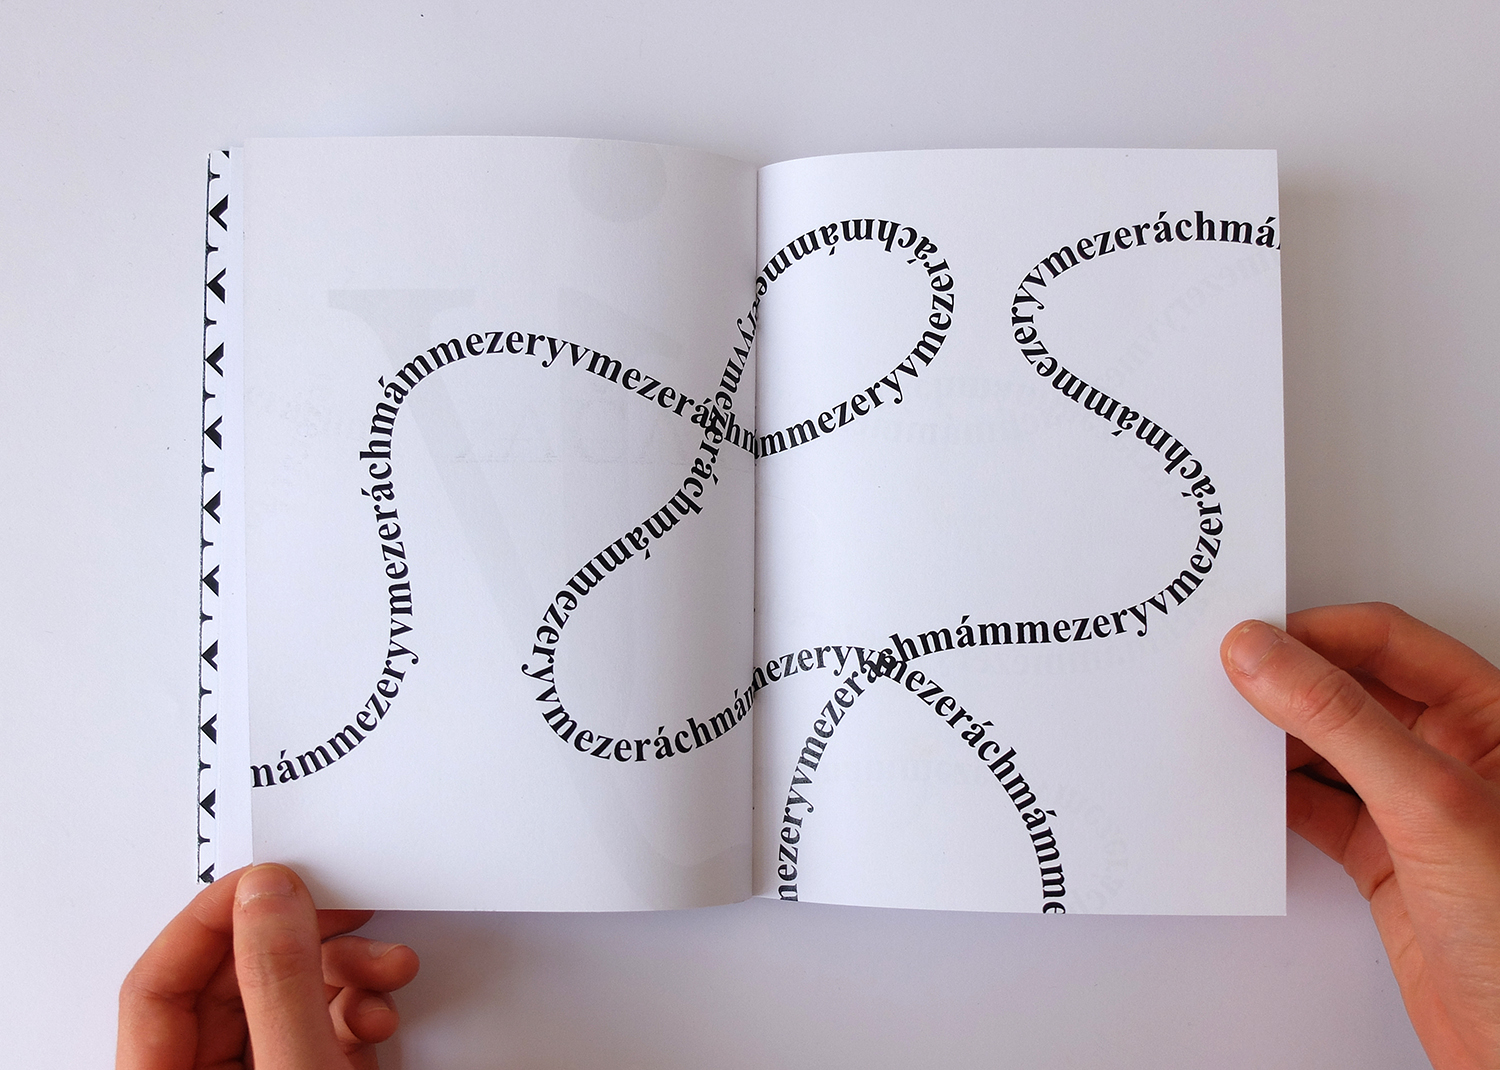 mámmezeryvmezeráchmámmezeryvmezeráchmámmezeryvmezeráchmámmezeryvmezeráchmámmezeryvmezeráchmámmezeryvmezeráchmámme
mezeryvmezeráchmámmezeryvmezeráchmámmezeryvmezeráchmá